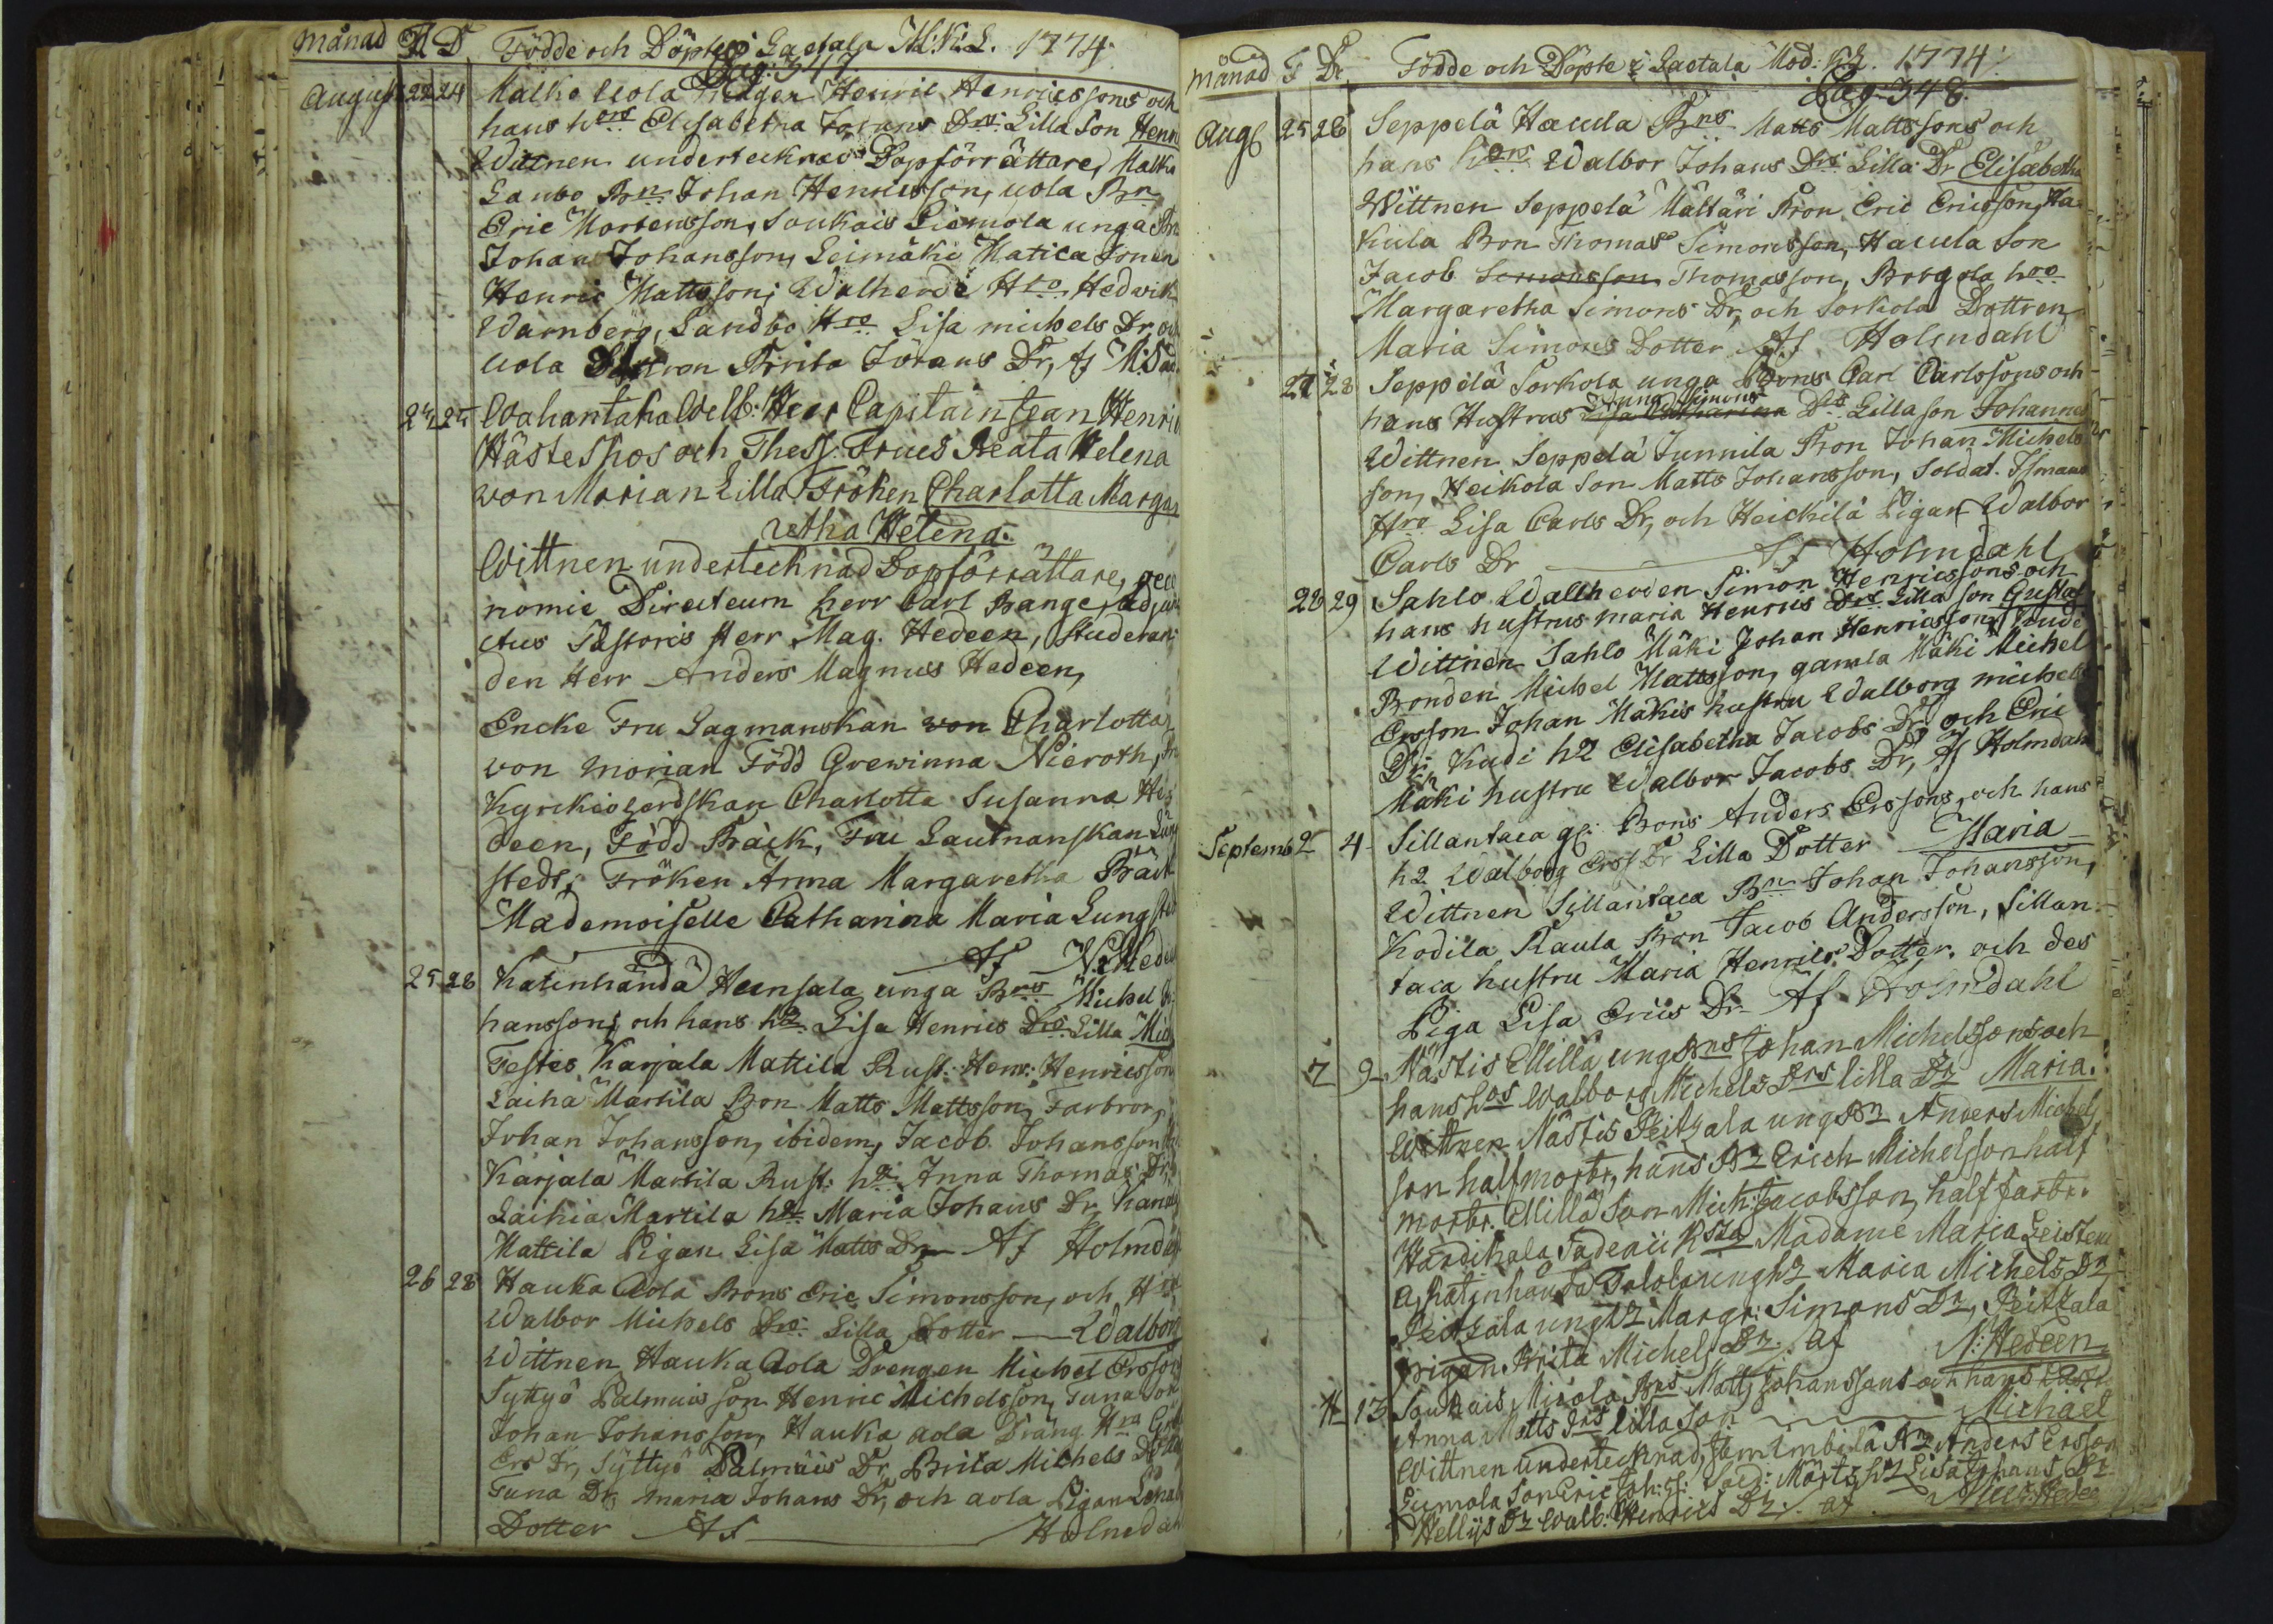 Månad F D Födde och Döpte i Lactala M:K:L. 1774.
Pag: 347
August 22 24 Malko Uola Henric Henricssons och
hans h:ors Elisabetha Johans Drs Lilla Son Henr
Wittnen undertecknad Dopförrättare, Malko
Laubo Bn Johan Henricsson, uola Bn
Eric Mortensson, Soukais Liemola unga Bn
Johan Johansson, Leimäki Matica Sonen
Henric Mattsson; Walherdi Hro Hedvik
Warnberg, Sandbo Hro Lisa michels Dr, och
uola Brita Jörans Dr, Af
24 25 Wahantaka Wellb: Herr Capitain Jean Henric
Hästeskos och Thess Frues Beata Helena
von Morian Lilla Fröken Charlotta Marga
retha Helena.
Wittnen undertechnad Dopförrättare,
nomie Directeurn herr Carl Bange, adjun
ctus Pastoris Herr Mag. Hedeen, Studeran
den Herr Anders Magnus Hedeen,
Encke Fru Lagmanskan von Charlotta
von Morian Född Grewinna Nieroth,
Kyrckioherdskan Charlotta Susanna He
deen, Född Bäck, Fru Lautnanskan Lung
stedt, Fröken Anna Margaretha Bäck
Mademoiselle Catharina Maria Lungsted
Af N: Hedeen
25 28 Katinhända Heensala unga Bns Michel
hanssons, och hans hr Lisa Henrics Drs Lilla Mich
Testes Karjala Mattila Rust: Henr: Henricsson
Laiha Martila Bon Matts Mattsson, Farbror,
Johan Johansson, ibidem, Jacob Johansson
Karjala Martila Rust: hr: Anna Thomas Dr,
Laihia Martila hr Maria Johans Dr,
Mattila Pigan Lisa Matts Dr Af Holmdahl
26 28 Hauka Aola Bons Eric Simonsson, och
Walbor Michels Drs Lilla Dotter — Walborg
Wittnen Hauka Aola Drengen Michel Ersson
Syttyö Palmuis son Henric Michelsson, Tuna Son
Johan Johansson, Hauka aola Dräng Hra
Ers Dr, Syttyö Palmuis Dr, Brita Michels Dr
Tuna Dr, maria Johans Dr, och aola Pigan
Dotter Af Holmdahl
Månad F D Födde och Döpte i Lactala Mod: K:L. 1774.
Pag: 348.
Aug 25 26 Seppelä Hacula Bns Matts Mattssons och
hans hors Walbor Johans Drs Lilla Dr Elisabetha
Wittnen Seppelä Mältäri Bon Eric Ericsson, Ha
kula Bon Thomas Simonsson, Hacula Son
Jacob Simonsson Thomasson, hro
Margaretha Simons Dr, och Sorkola Dottren
Maria Simons Dotter Af Holmdahl
27 28 Seppelä Sorkola unga Bons Carl Carlssons och
Anna Simons
hans Hustrus Lisa Catharina Drs Lilla son Johannes
Wittnen Seppelä Junnila Bon Johan Michels
son, Heikola Son Matts Johansson, Soldat
Hro Lisa Carls Dr, och Heickilä Pigan Walbor
Carls Dr Af Holmdahl
28 29 Sahlo Wallherden Simon Henricssons och
hans hustrus maria Henrics Drs Lilla son Gustaf
Wittnen Sahlo Mäki Johan Henricsson,
Bonden Michel Mattsson, gamla Mäki Michel
Ersson Johan Mäkis hustru Walborg michels
Dr Kudi hr Elisabetha Jacobs Dr, och Eric
Mäki hustru Walbor Jacobs Dr, Af Holmdahl
Septemb 2 4 Sillantaca gl: Bons Anders Erssons, och hans
hr Walborg Erss Dr Lilla Dotter Maria
Wittnen Sillantaca Bn Johan Johansson,
Kodila Raula Bon Jacob Andersson, Sillan
taca hustru Maria Henrics Dotter, och des
Piga Lisa Erics Dr Af Holmdahl
7 9 Nästis Millä ung Bns Johan Michelssons och
hans hos Walborg Michels Drs lilla Dr Maria.
Wittnen Nästis Peitzala ung Bn Anders Michels
son halfmorbr, hans Br Erich Michelsson half
morbr. Millä Son Mich: Jacobsson, half farbr.
Hardikala Fadeaii Madame Maria Leisten
a, Katinhända Talola ung hr Maria Michels Dr
Peitzala ung hr Margr: Simons Dr, Peitzala
pigan Brita Michels Dr. af N: Hedeen
11 13 Soukais Mixola Bns Matts Johanssons och hans
Anna Matts Drs lilla Son Michael
Wittnen undertecknad, Anders Ersson
Liemola Son Eric Joh: S: Sold: Märts hr Lisa Johans Dr
Hellys Dr Walb: Henrics Dr. af